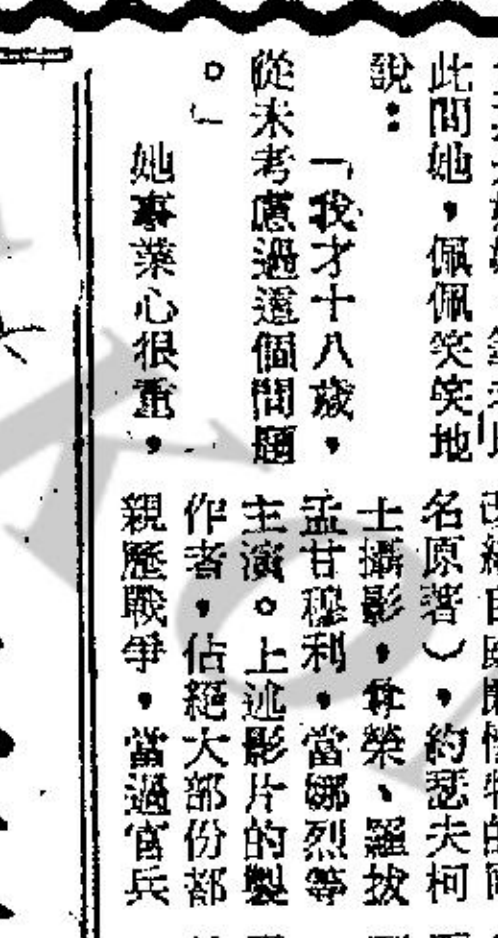 此問她，佩佩笑笑地
說：
「我才十八歲，
從未考慮過這個問題
。」
她事業心很重，
名原著），約瑟夫柯
士攝影，奔榮、羅拔
孟甘穆利，當娜烈等
主演。上述影片的製
作者，佔絕大部份都
親歷戰爭，當過官兵